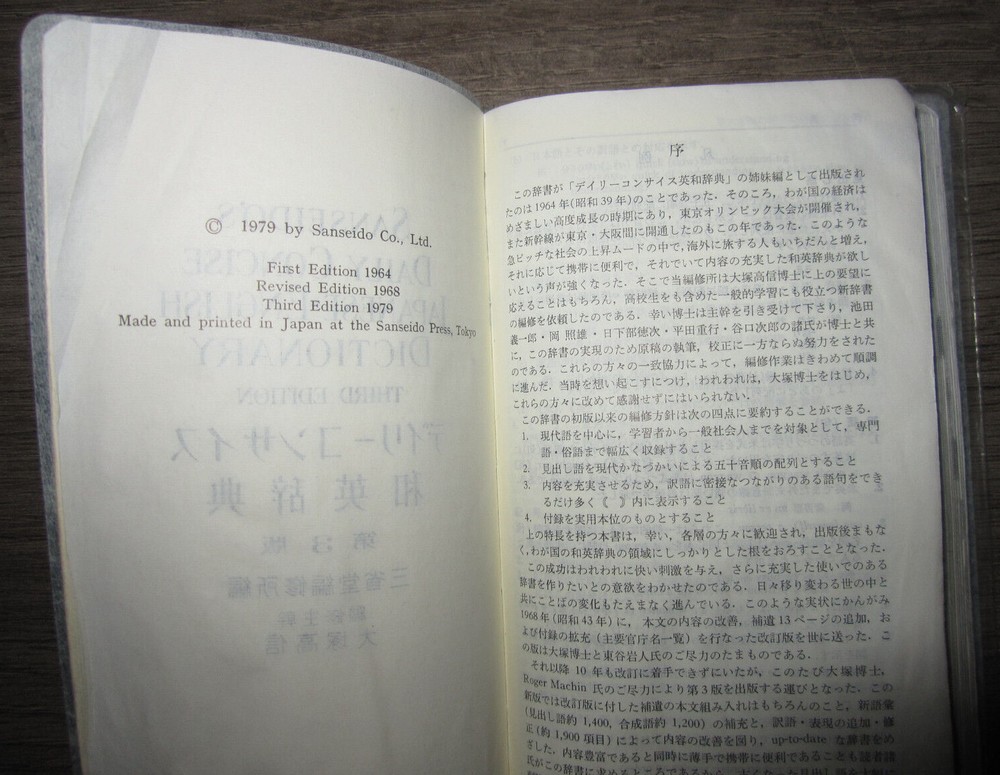 © 1979 by Sanseido Co., Ltd.
First Edition 1964
Revised Edition 1968
Third Edition 1979
Made and printed in Japan at the Sanseido Press, Tokyo
SANSEIDO'S
DAILY CONCISE
JAPANESE-ENGLISH
DICTIONARY
THIRD EDITION
デイリーコンサイス
和英辞典
第3版
三省堂編修所編
編修主幹
大塚高信
序
この辞書が「デイリーコンサイス英和辞典」の姉妹編として出版され
たのは1964年(昭和39年)のことであった．そのころ，わが国の経済は
めざましい高度成長の時期にあり，東京オリンピック大会が開催され，
また新幹線が東京・大阪間に開通したのもこの年であった．このような
急ピッチな社会の上昇ムードの中で，海外に旅する人もいちだんと増え，
それに応じて携帯に便利で，それでいて内容の充実した和英辞典が欲し
いという声が強くなった．そこで当編修所は大塚高信博士に上の要望に
応えることはもちろん，高校生をも含めた一般的学習にも役立つ新辞書
の編修を依頼したのである．幸い博士は主幹を引き受けて下さり，池田
義一郎・岡 照雄・日下部徳次・平田重行・谷口次郎の諸氏が博士と共
に，この辞書の実現のため原稿の執筆，校正に一方ならぬ努力をされた
のである．これらの方々の一致協力によって，編修作業はきわめて順調
に進んだ．当時を想い起こすにつけ，われわれは，大塚博士をはじめ，
これらの方々に改めて感謝せずにはいられない．
この辞書の初版以来の編修方針は次の四点に要約することができる．
1. 現代語を中心に，学習者から一般社会人までを対象として，専門
語・俗語まで幅広く収録すること
2. 見出し語を現代かなづかいによる五十音順の配列とすること
3. 内容を充実させるため，訳語に密接なつながりのある語句をでき
るだけ多く《 》内に表示すること
4. 付録を実用本位のものとすること
上の特長を持つ本書は，幸い，各層の方々に歓迎され，出版後まもな
く，わが国の和英辞典の領域にしっかりとした根をおろすこととなった．
この成功はわれわれに快い刺激を与え，さらに充実した使いでのある
辞書を作りたいとの意欲をわかせたのである．日々移り変わる世の中と
共にことばの変化もたえまなく進んでいる．このような実状にかんがみ
1968年(昭和43年)に，本文の内容の改善，補遺13ページの追加，お
よび付録の拡充(主要官庁名一覧)を行なった改訂版を世に送った．こ
の版は大塚博士と東谷岩人氏のご尽力のたまものである．
それ以降10年も改訂に着手できずにいたが，このたび大塚博士，
Roger Machin 氏のご尽力により第3版を出版する運びとなった．この
新版では改訂版に付した補遺の本文組み入れはもちろんのこと，新語彙
(見出し語約1,400，合成語約1,200)の補充と，訳語・表現の追加・修
正(約1,900項目)によって内容の改善を図り，up-to-date な辞書をめ
ざした．内容豊富であると同時に薄手で携帯に便利であることも読者諸
氏がこの辞書に求めるところであるから